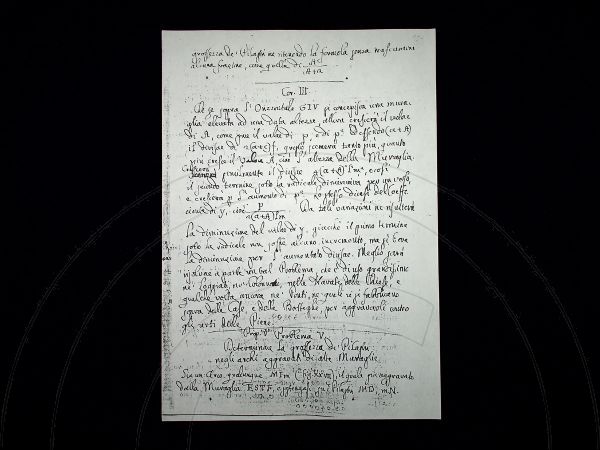 grossezza de' Pilastri ne ritenendo la formola senza
alcuna frazione, come quella di A²/A+a
Cor. III.
Che se sopra l'Orizzontale GIV si concepisca una mura
glia elevata ad una data altezza, allora crescerà il valor
di A, come pure il valor di p, e di p² ed essendo (a+A)
il divisor di 2(a+c)f, questo scemerà tanto più, quanto
più cresce il valor A, cioè l'altezza della Muraglia.
Crescerà similmente il divisor
il secondo termine sotto la radicale diminuirà per un verso
e crescerà per l'aumento di p² no stesso divisor del Coeffi
ciente di y, cioè p / 2(a+A)Im. Da tali variazioni ne risulterà
la diminuzione del valor di y, giacchè il primo termine
sotto la radicale non soffre alcuno incremento, ma si trova
la diminuzione per l'aumentato divisor. Meglio sarà
risolvere a parte un tal Problema, che è di uso grandissimo
ne' Loggiati, ne' Colonnati, nelle Navate delle Chiese, e
qualche volta ancora ne' Ponti, ne' quali si fabbricano
sopra delle Case, e delle Botteghe per aggravarli contro
gli urti delle Piene.
Problema V.
Determinare la grossezza de' Pilastri
negli archi aggravati di alte Muraglie.
Sia un Arco qualunque MTm, il quale sia aggravato
dalla Muraglia ESTF, appoggiato su' Pilastri MD, mN.